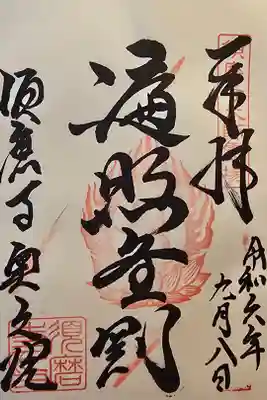 奉拝
令和六年
九月八日
遍照金剛
須磨寺奥之院
須磨